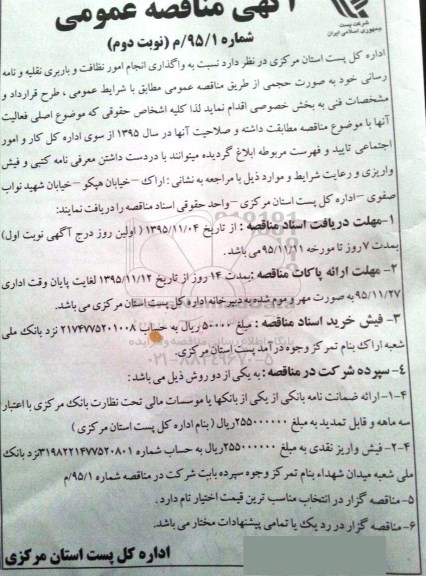 آگهی مناقصه عمومی
شرکت پست
جمهوری اسلامی ایران
شماره ۹۵/۱/م (نوبت دوم)
اداره کل پست استان مرکزی در نظر دارد نسبت به واگذاری انجام امور نظافت و باربری نقلیه و نامه
رسانی خود به صورت حجمی از طریق مناقصه عمومی مطابق با شرایط عمومی ، طرح قرارداد و
مشخصات فنی به بخش خصوصی اقدام نماید لذا کلیه اشخاص حقوقی که موضوع اصلی فعالیت
آنها با موضوع مناقصه مطابقت داشته و صلاحیت آنها در سال ۱۳۹۵ از سوی اداره کل کار و امور
اجتماعی تایید و فهرست مربوطه ابلاغ گردیده میتوانند با دردست داشتن معرفی نامه کتبی و فیش
واریزی و رعایت شرایط و موارد ذیل با مراجعه به نشانی : اراک – خیابان هپکو – خیابان شهید نواب
صفوی – اداره کل پست استان مرکزی – واحد حقوقی اسناد مناقصه را دریافت نمایند:
۱-مهلت دریافت اسناد مناقصه : از تاریخ ۱۳۹۵/۱۱/۰۴ ( اولین روز درج آگهی نوبت اول)
بمدت ۷ روز تا مورخه ۹۵/۱۱/۲۱ می باشد.
۲- مهلت ارائه پاکات مناقصه :بمدت ۱۴ روز از تاریخ ۱۳۹۵/۱۱/۱۲ لغایت پایان وقت اداری
۹۵/۱۱/۲۷ به صورت مهر و موم شده به دبیرخانه اداره کل پست استان مرکزی می باشد.
۳- فیش خرید اسناد مناقصه : مبلغ ۵۰۰۰۰۰ ریال به حساب ۲۱۷۴۷۷۵۲۰۱۰۰۸ نزد بانک ملی
شعبه اراک بنام تمرکز وجوه درآمد پست استان مرکزی.
پایگاه اطلاع رسانی مناقصه و مزایده
۰۲۱-۸۸۳۴۹۶۷۰-۵
۴- سپرده شرکت در مناقصه : به یکی از دو روش ذیل می باشد:
۴-۱-ارائه ضمانت نامه بانکی از یکی از بانکها یا موسسات مالی تحت نظارت بانک مرکزی با اعتبار
سه ماهه و قابل تمدید به مبلغ ۲۵۵۰۰۰۰۰۰ریال (بنام اداره کل پست استان مرکزی )
۴-۲- فیش واریز نقدی به مبلغ ۲۵۵۰۰۰۰۰۰ریال به حساب شماره ۳۱۹۸۲۲۱۴۷۷۵۲۰۸۰۱نزد بانک
ملی شعبه میدان شهداء بنام تمرکز وجوه سپرده بابت شرکت در مناقصه شماره ۹۵/۱/م
۵- مناقصه گزار در انتخاب مناسب ترین قیمت اختیار تام دارد .
۶- مناقصه گزار در رد یک یا تمامی پیشنهادات مختار می باشد.
اداره کل پست استان مرکزی